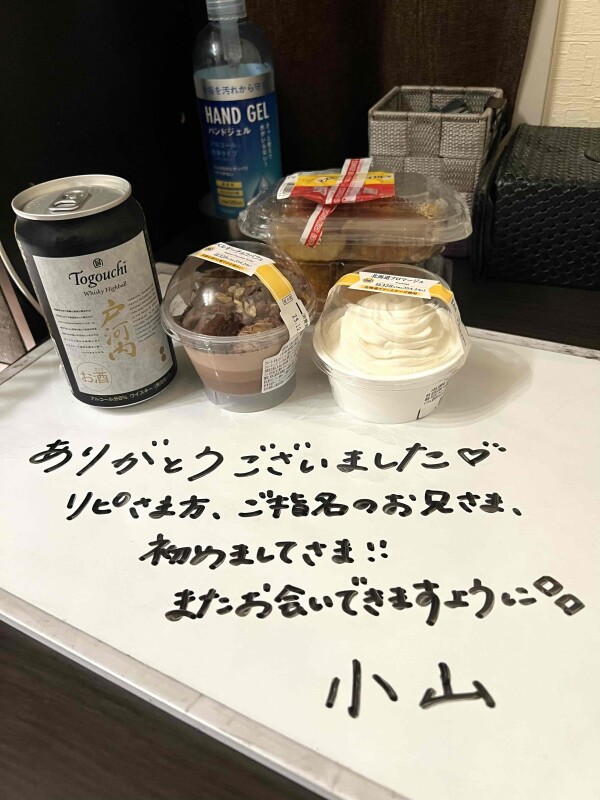 を汚れから守
HAND GEL
ハンドジェル
Togouchi
Whisky Highball
戸河内
お酒
北海道フロマージュ
ありがとうございました♡
リピさま方、ご指名のお兄さま、
初めましてさま!!
またお会いできますように
小山